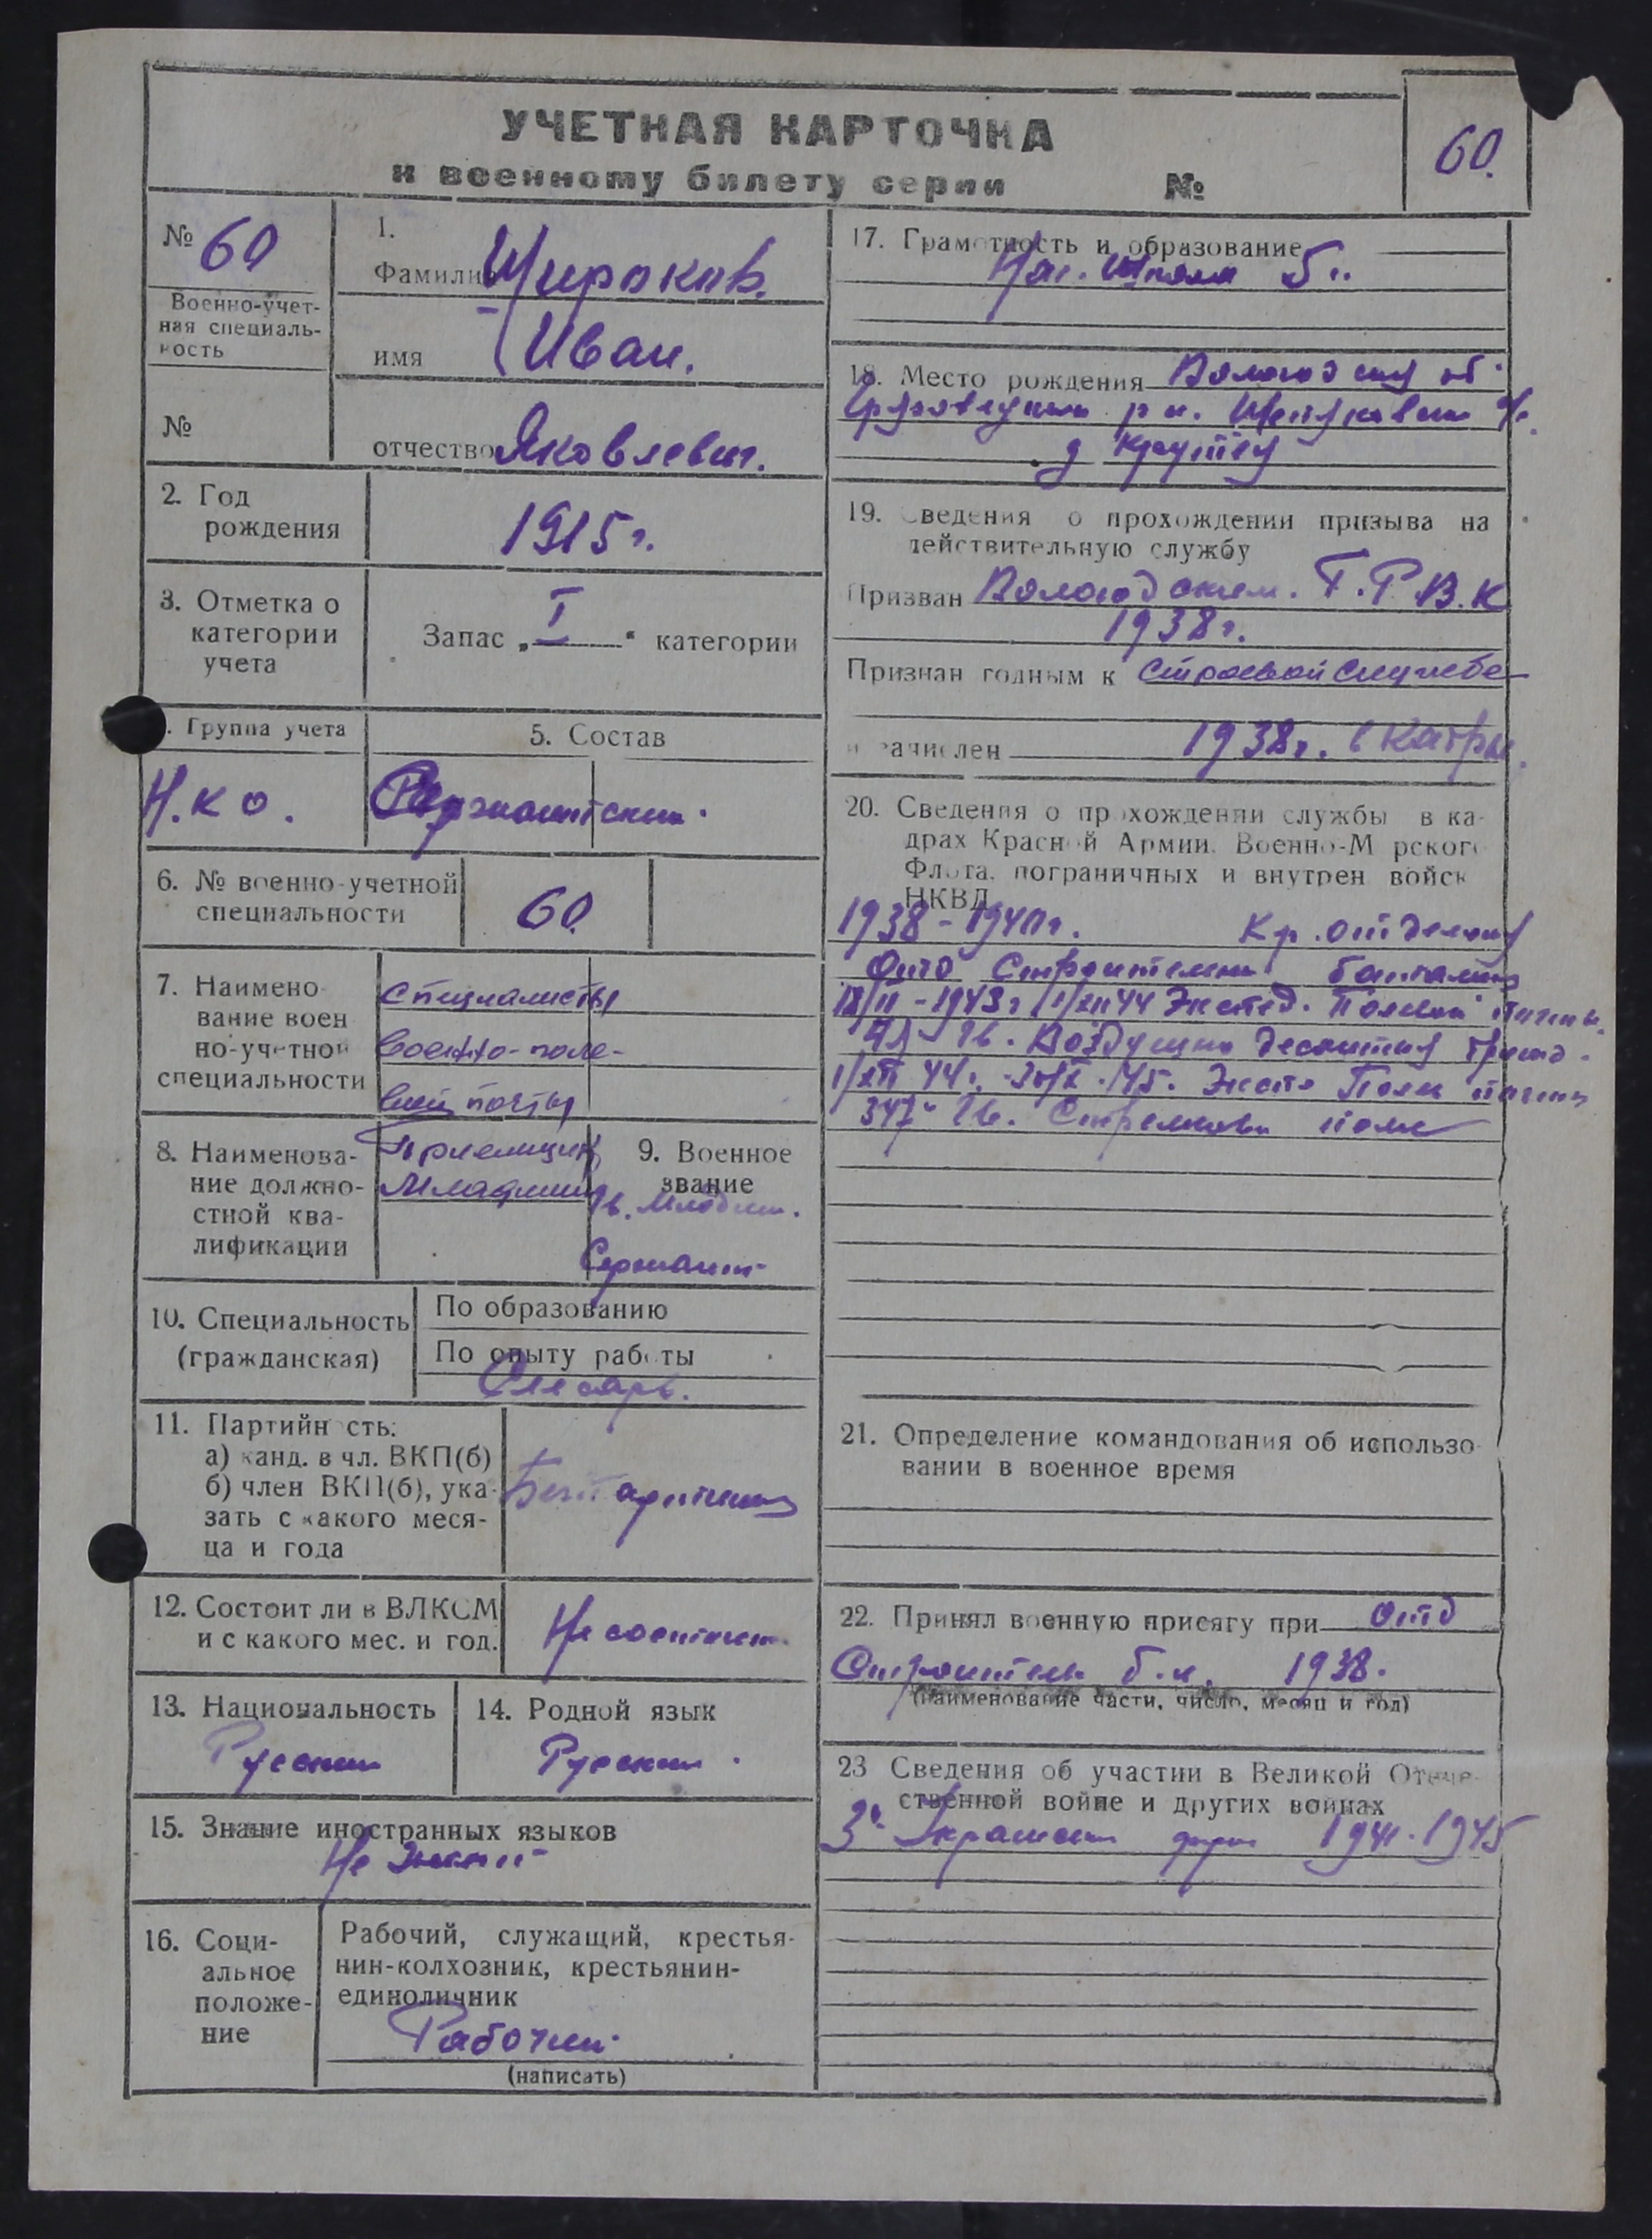 УЧЕТНАЯ КАРТОЧКА
к военному билету серии №
60.
№ 60
Военно-учет-
ная специаль-
ность
№
1.
Фамилия Широков.
имя Иван.
отчество Яковлевич.
2. Год
рождения
1915 г.
3. Отметка о
категории
учета
Запас „ I “ категории
. Группа учета
Н.К О.
5. Состав
Сержантский.
6. № военно-учетной
специальности
60.
7. Наимено
вание воен
но-учетной
специальности
Специалисты
военно-поле-
вой почты
8. Наименова-
ние должно-
стной ква-
лификации
Приемщик
Младший
9. Военное
звание
Гв. Младш.
Сержант
10. Специальность
(гражданская)
По образованию
По опыту работы
Слесарь.
11. Партийность:
а) канд. в чл. ВКП(б)
б) член ВКП(б), ука-
зать с какого меся-
ца и года
Беспартийный
12. Состоит ли в ВЛКСМ
и с какого мес. и год.
Не состоит.
13. Национальность
Русский
14. Родной язык
Русский.
15. Знание иностранных языков
Не знает
16. Соци-
альное
положе-
ние
Рабочий, служащий, крестья-
нин-колхозник, крестьянин-
единоличник
Рабочий.
(написать)
17. Грамотность и образование
Нач. Школа 5
18. Место рождения Вологодская об.
р н.
д
19. Сведения о прохождении призыва на
действительную службу
Призван Вологодским. Г.Р.В.К
1938 г.
Признан годным к Строевой службе
и зачислен 1938 г. в
20. Сведения о прохождении службы в ка-
драх Красной Армии, Военно-Морского
Флота, пограничных и внутрен войск
НКВД
1938 - 1940 г. Кр.
Отд Строительный батальон
1943 г. 44 Экспед. Полевой почты
Гв. Воздушно десантная бригад.
44 г. 45. Полев почты
347 Гв. Стрелковый полк
21. Определение командования об использо
вании в военное время
22. Принял военную присягу при Отд
Строитель б.н. 1938.
(наименование части, число, месяц и год)
23 Сведения об участии в Великой Отече-
ственной войне и других войнах
3й Украинский фрон 1941 - 1945